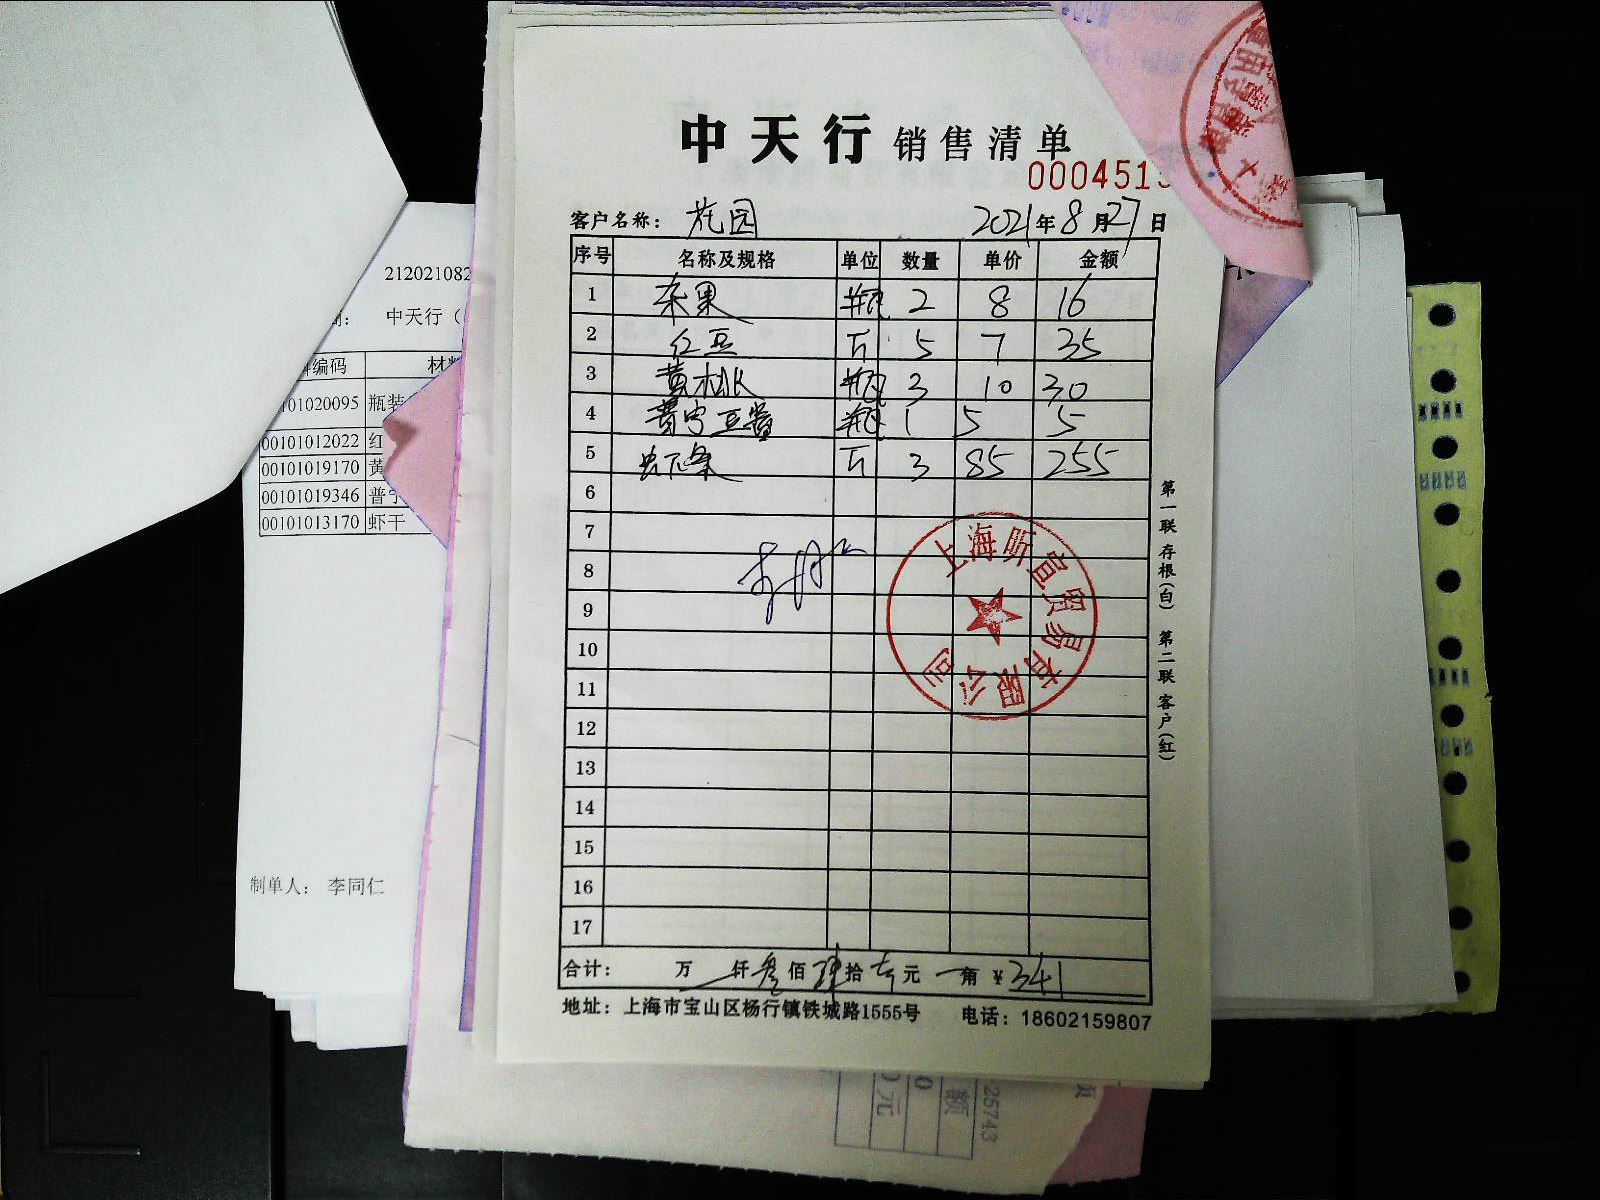 中天行 销售清单
000451
客户名称： 花园 2021年8月27日
序号 名称及规格 单位 数量 单价 金额
1 杂果 瓶 2 8 16
2 红豆 斤 5 7 35
3 黄桃 瓶 3 10 30
4 普宁豆酱 瓶 1 5 5
5 斤 3 85 255
6
7
8
9
10
11
12
13
14
15
16
17
合计： 万 仟叁佰肆拾 元 角 ¥341
地址：上海市宝山区杨行镇铁城路1555号 电话：18602159807
第一联 存根(白) 第二联 客户(红)
上海昕宣贸易有限公司
212021082
中天行（
编码 材料
01020095 瓶装
00101012022 红
00101019170 黄
00101019346 普宁
00101013170 虾干
制单人： 李同仁
25743
额
元